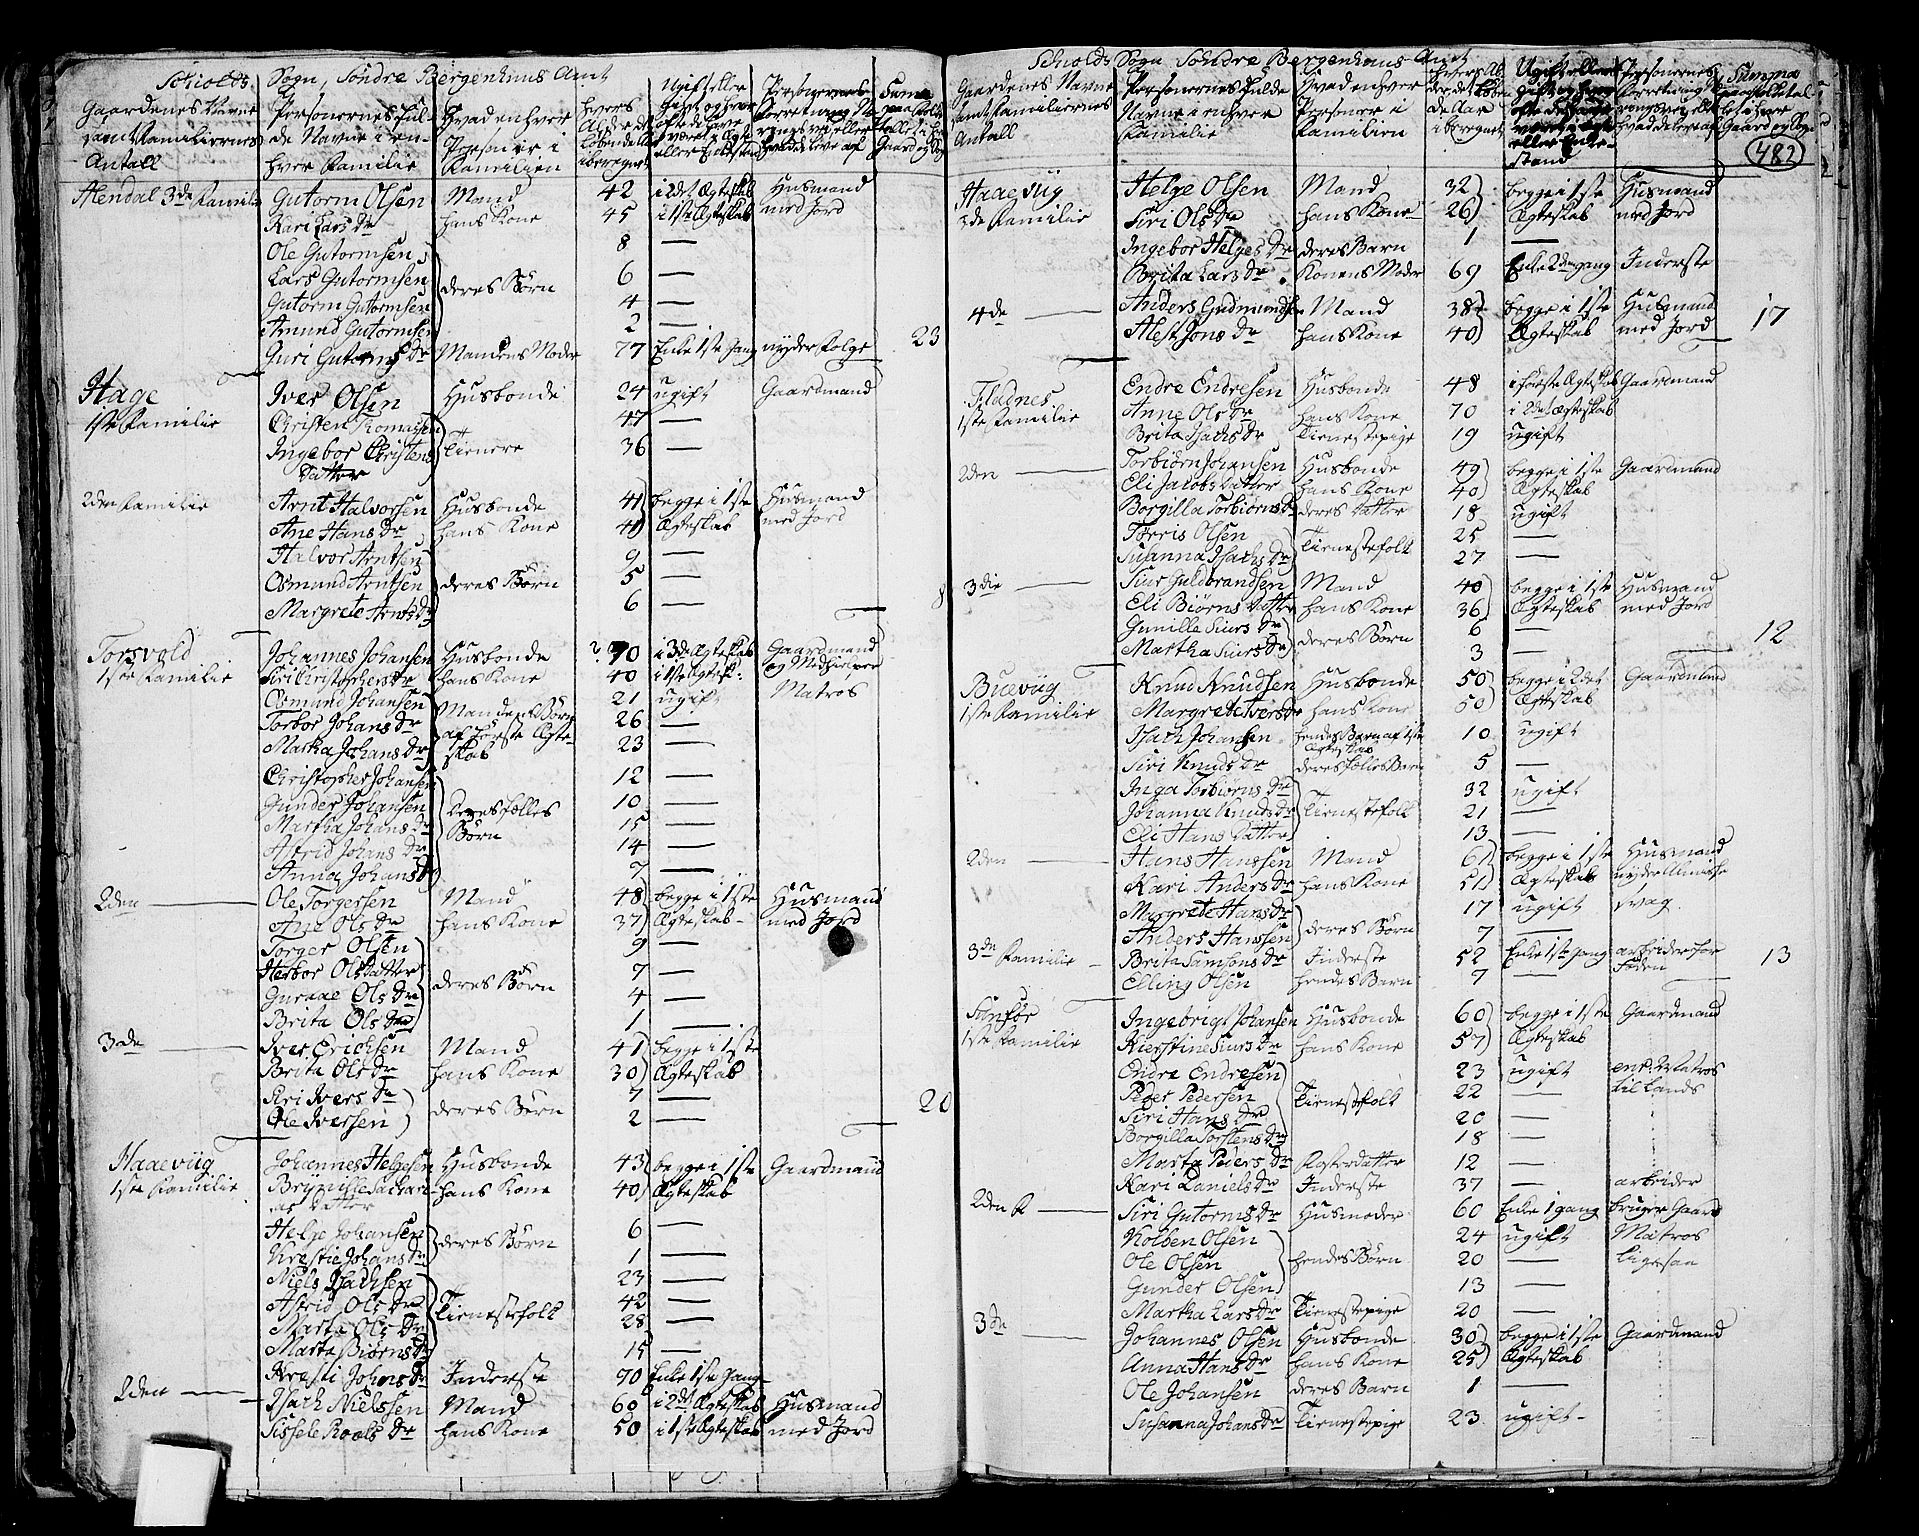 Schiolds Sogn, Søndre Bergenhuus Amt
Gaardenes Navne samt Familiernes Antall | Personernes Fulde Navne i enhver Familie | Hvad enhver Person er i Familien | hvers Alder det løbende Aar iberegnet | Ugift eller Gift
Alendal 3de Familie | Gutorm Olsen | Mand | 42 | i 2det Ægteskab | Husmand
Kari Lars Dr | hans Kone | 45 | i 1ste Ægteskab | med Jord
Ole Gutormsen | 8 | —
Lars Gutormsen | deres Børn | 6 | —
Gutorm Gutormsen | 4 | —
Amund Gutormsen | 2 | —
Guri Gutorms Dr | Mandens Moder | 77 | Enke 1ste Gang | nyder Folge | 23
Hage | Iver Olsen | Husbonde | 24 | ugift | Gaardmand
1ste Familie | Christen Tomassen | 47 | —
Ingebor Christens Datter | Tienere | 36 | —
2den Familie | Arnt Halvorsen | Husbonde | 41) | begge i 1ste | Husmand
Ane Hans Dr | hans Kone | 40 | Ægteskab | med Jord
Halvor Arntsen | 9 | —
Osmund Arntsen | deres Børn | 5 | —
Margrete Arnts Dr | 6 | — | 8
Torsvold | Johannes Johansen | Husbonde | 70 | i 3de Ægteskab | Gaardmand
1ste Familie | Siri Christophers Dr | hans Kone | 40 | i 1ste Ægtesk: | og Medhielper
Osmund Johansen | Mandens Børn | 21 | ugift | Matros
Torbor Johans Dr | af første Ægte- | 26 | —
Martha Johans Dr | skab | 23 | —
Christopher Johansen | 12 | —
Gunder Johansen | Deres fælles | 10 | —
Martha Johans Dr | Børn | 15 | —
Astrid Johans Dr | 14 | —
Anna Johans Dr | 7 | —
2den — | Ole Torgersen | Mand | 48) | begge i 1ste | Husmand
Ane Ols Dr | hans Kone | 37) | Ægteskab | med Jord
Torger Olsen | 9 | —
Herbor Olsdatter | deres Børn | 7 | —
Guruae Ols Dr | 4 | —
Brita Ols Dr | 1 | —
3die — | Iver Erichsen | Mand | 41) | begge i 1ste
Brita Ols Dr | hans Kone | 30) | Ægteskab
Siri Ivers Dr | deres Børn | 7 | —
Ole Iversen | 2 | — | 20
Haaevüg | Johannes Helgesen | Husbonde | 43) | begge i 1ste | Gaardmand
1ste Familie | Brynille Sachari- | hans Kone | 40) | Ægteskab
as Datter
Helge Johansen | deres Børn | 6 | —
Krestie Johans Dr | 1 | —
Niels Isachsen | 23 | —
Astrid Ols Dr | Tienestefolk | 42 | —
Marta Ols Dr | 28 | —
Marte Biørns Dr | 15 | —
Kresti Johns Dr | Inderste | 70 | Enke 1ste Gang
2den — | Isach Nielssen | Mand | 60 | i 2det Ægteskab | Husmand
Sissele Roals Dr | hans Kone | 50 | i 1ste Ægteskab | med Jord
Schiolds Sogn Søndre Bergenhuus Amt
Gaardenes Navne samt Familiernes Antall | Personernes Fulde Navne i enhver Familie | Hvad enhver Person er i Familien
482
Haaevüg | Helge Olsen | Mand | 32) | begge i 1ste | Husmand
3die Familie | Siri Ols Dr | hans Kone | 26) | Ægteskab | med Jord
Ingebor Helges Dr | deres Barn | 1 | —
Brita Lars Dr | Konens Moder | 69 | Enke 2den gang | Inderste
4de — | Anders Gudmundsen | Mand | 38 | begge i 1ste | Husmand | 17
Alest Jons Dr | hans Kone | 40) | Ægteskab | med Jord
Fladnes | Endre Endresen | Husbonde | 48 | i første Ægteskab | Gaardmand
1ste Familie | Anne Ols Dr | hans Kone | 70 | i 2det Ægteskab
Brita Isachs Dr | Tienestepige | 19 | ugift
2den — | Torbiørn Johansen | Husbonde | 49) | begge i 1ste | Gaardmand
Eli Jacobs Datter | hans Kone | 40) | Ægteskab
Borgilla Torbiørns Dr | deres Datter | 18 | ugift
Tørris Olsen | Tienestefolk | 25 | —
Susanna Isachs Dr | 27 | —
3die — | Siur Guldbrandsen | Mand | 40) | begge i 1ste | Husmand
Eli Biørns Datter | hans Kone | 36) | Ægteskab | med Jord
Gunille Siurs Dr | deres Børn | 6 | — | 12
Martha Siurs Dr | 3 | —
Buevüg | Knud Knudsen | Husbonde | 50) | begge i 2det | Gaardmand
1ste Familie | Margrete Ivers Dr | hans Kone | 50) | Ægteskab
Isach Johansen | hendes Barn af 1ste Ægteskab | 10 | ugift
Siri Knuds Dr | deres fælles Barn | 5 | —
Inga Torbiørns Dr | 32 | ugift
Johanna Knuds Dr | Tienestefolk | 21 | —
Eli Hans Datter | 13 | —
2den — | Hans Hanssen | Mand | 61) | begge i 1ste | Husmand
Kari Anders Dr | hans Kone | 51) | Ægteskab
Margrete Hans Dr | deres Børn | 17 | ugift | svag
Anders Hanssen | 7 | —
3de Familie — | Brita Samsons Dr | Inderste | 52 | Enke 1ste gang | arbeider for Føden | 13
Elling Olsen | hendes Barn | 7 | —
1ste Familie | Ingebrigt Johansen | Husbonde | 60) | begge i 1ste | Gaardmand
Kierstine Siurs Dr | hans Kone | 57) | Ægteskab
Endre Endresen | 23 | ugift | Matros
Peder Pedersen | Tienestefolk | 22 | — | til Lands
Siri Hans Dr | 20 | —
Borgilla Torstens Dr | 18 | —
Marta Peders Dr | Fosterdatter | 12 | —
Kari Daniels Dr | Inderste | 37 | — | arbeider
2den F — | Siri Gutorms Dr | Husmoder | 60 | Enke 1 gang | bruger Gaard
Kolben Olsen | 24 | ugift | Matros
Ole Olsen | hendes Børn | 20 | — | ligesaa
Gunder Olsen | 13 | —
Martha Lars Dr | Tienestepige | 20 | —
3de — | Johannes Olsen | Husbonde | 30) | begge i 1ste | Gaardmand
Anna Hans Dr | hans Kone | 25) | Ægteskab
Ole Johansen | deres Barn | 1 | —
Susanna Johans Dr | Tienestepige | 23 | ugift